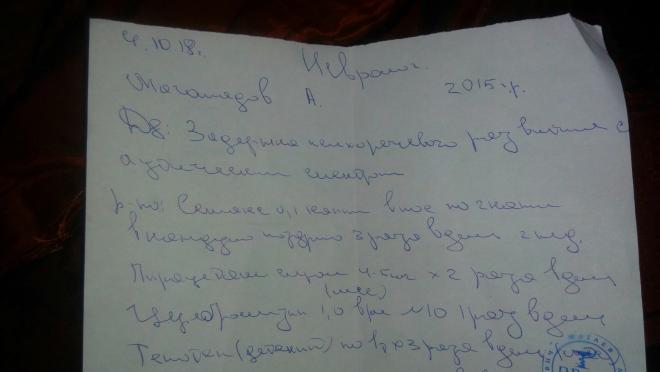 4.10.18г.
Невролог.
Магомедов А. 2015 г.р.
Ds: Задержка психоречевого развития с
аутическим спектром
р-но: Семакс 0,1 капли в нос по 2 капли
в каждую ноздрю 3 раза в день 2 нед.
Пирацетам сироп 4-5мл x 2 раза в день
(мес)
Церебролизин 1,0 в/м N10 1 раз в день
Тенотен (детский) по 1т x 3 раза в день